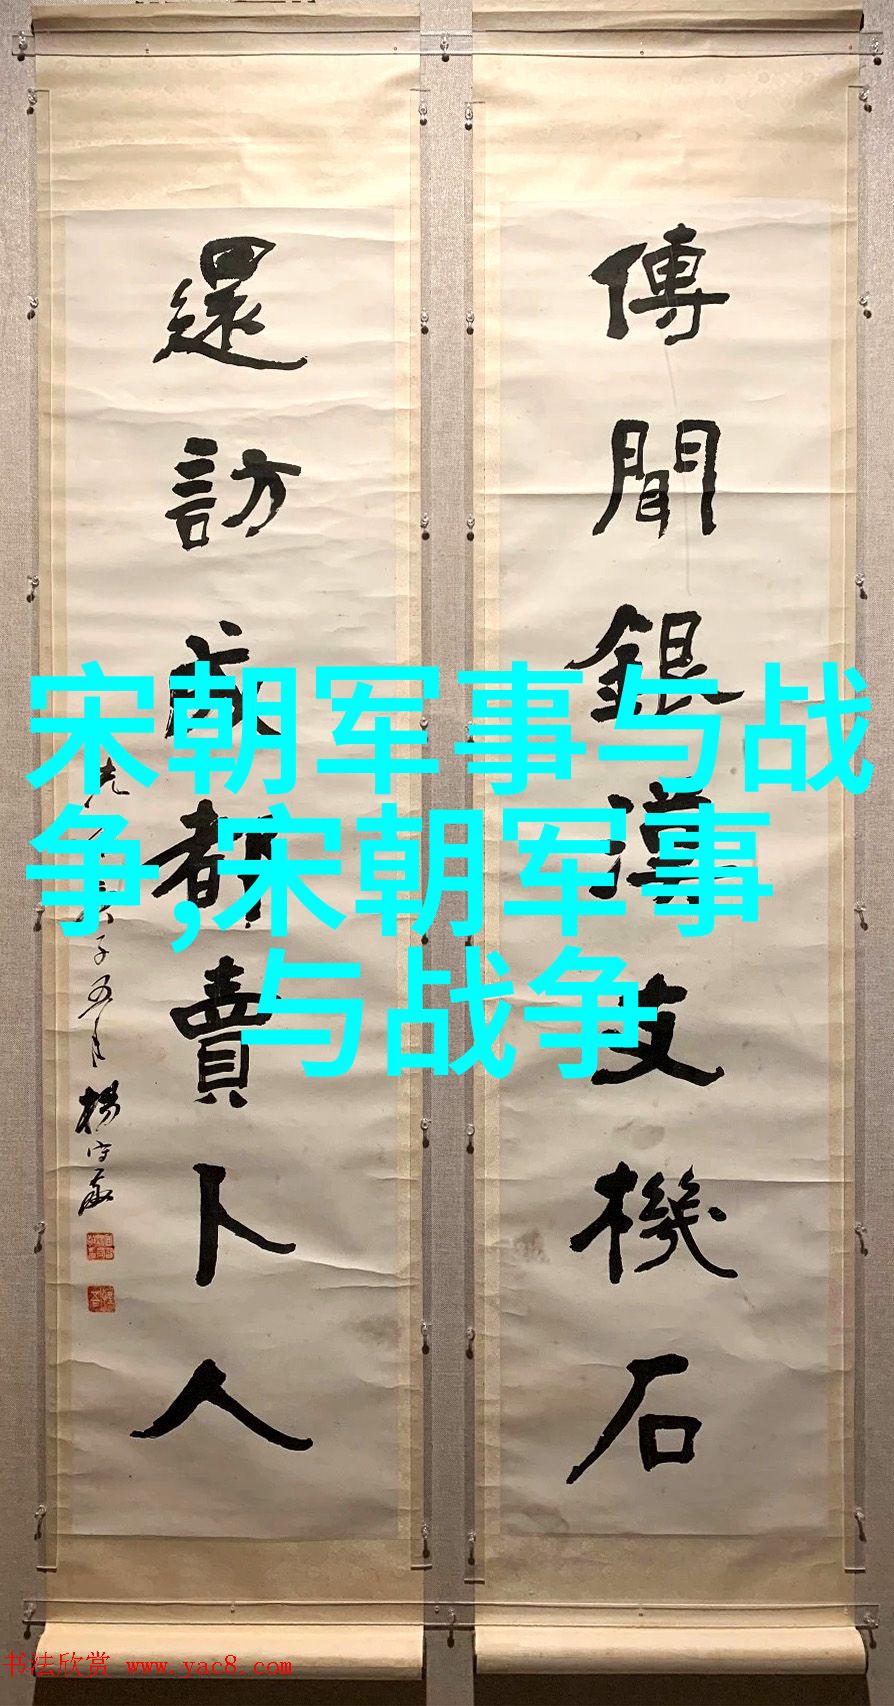 傳聞銀漢支機石
還訪成都賣卜人
楊守敬
宋朝军事与战
争,宋朝军事
与战争
书法欣赏 www.yac8.com